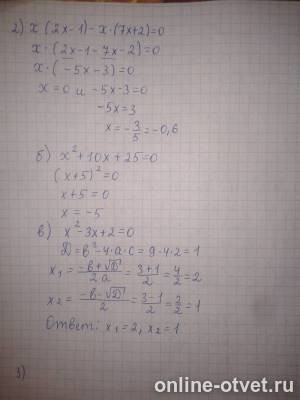 2) x (2x-1) - x·(7x+2)=0
x·(2x-1-7x-2)=0
x·(-5x-3)=0
x=0 и -5x-3=0
-5x=3
x=-3/5=-0,6
б) x²+10x+25=0
(x+5)²=0
x+5=0
x=-5
в) x²-3x+2=0
D=в²-4·a·c=9-4·2=1
x₁=(-в+√D)/2a=(3+1)/2=4/2=2
x₂=(-в-√D)/2=(3-1)/2=2/2=1
Ответ: x₁=2, x₂=1
3)
online-otvet.ru